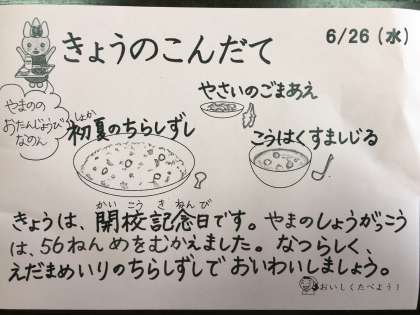 きょうのこんだて
6/26(水)
やまのの
おたんじょうび
なのん
やさいのごまあえ
しょか
初夏のちらしずし
こうはくすましじる
かいこうきねんび
きょうは、開校記念日です。やまのしょうがっこう
は、56ねんめをむかえました。なつらしく、
えだまめいりのちらしずしでおいわいしましょう。
おいしくたべよう!